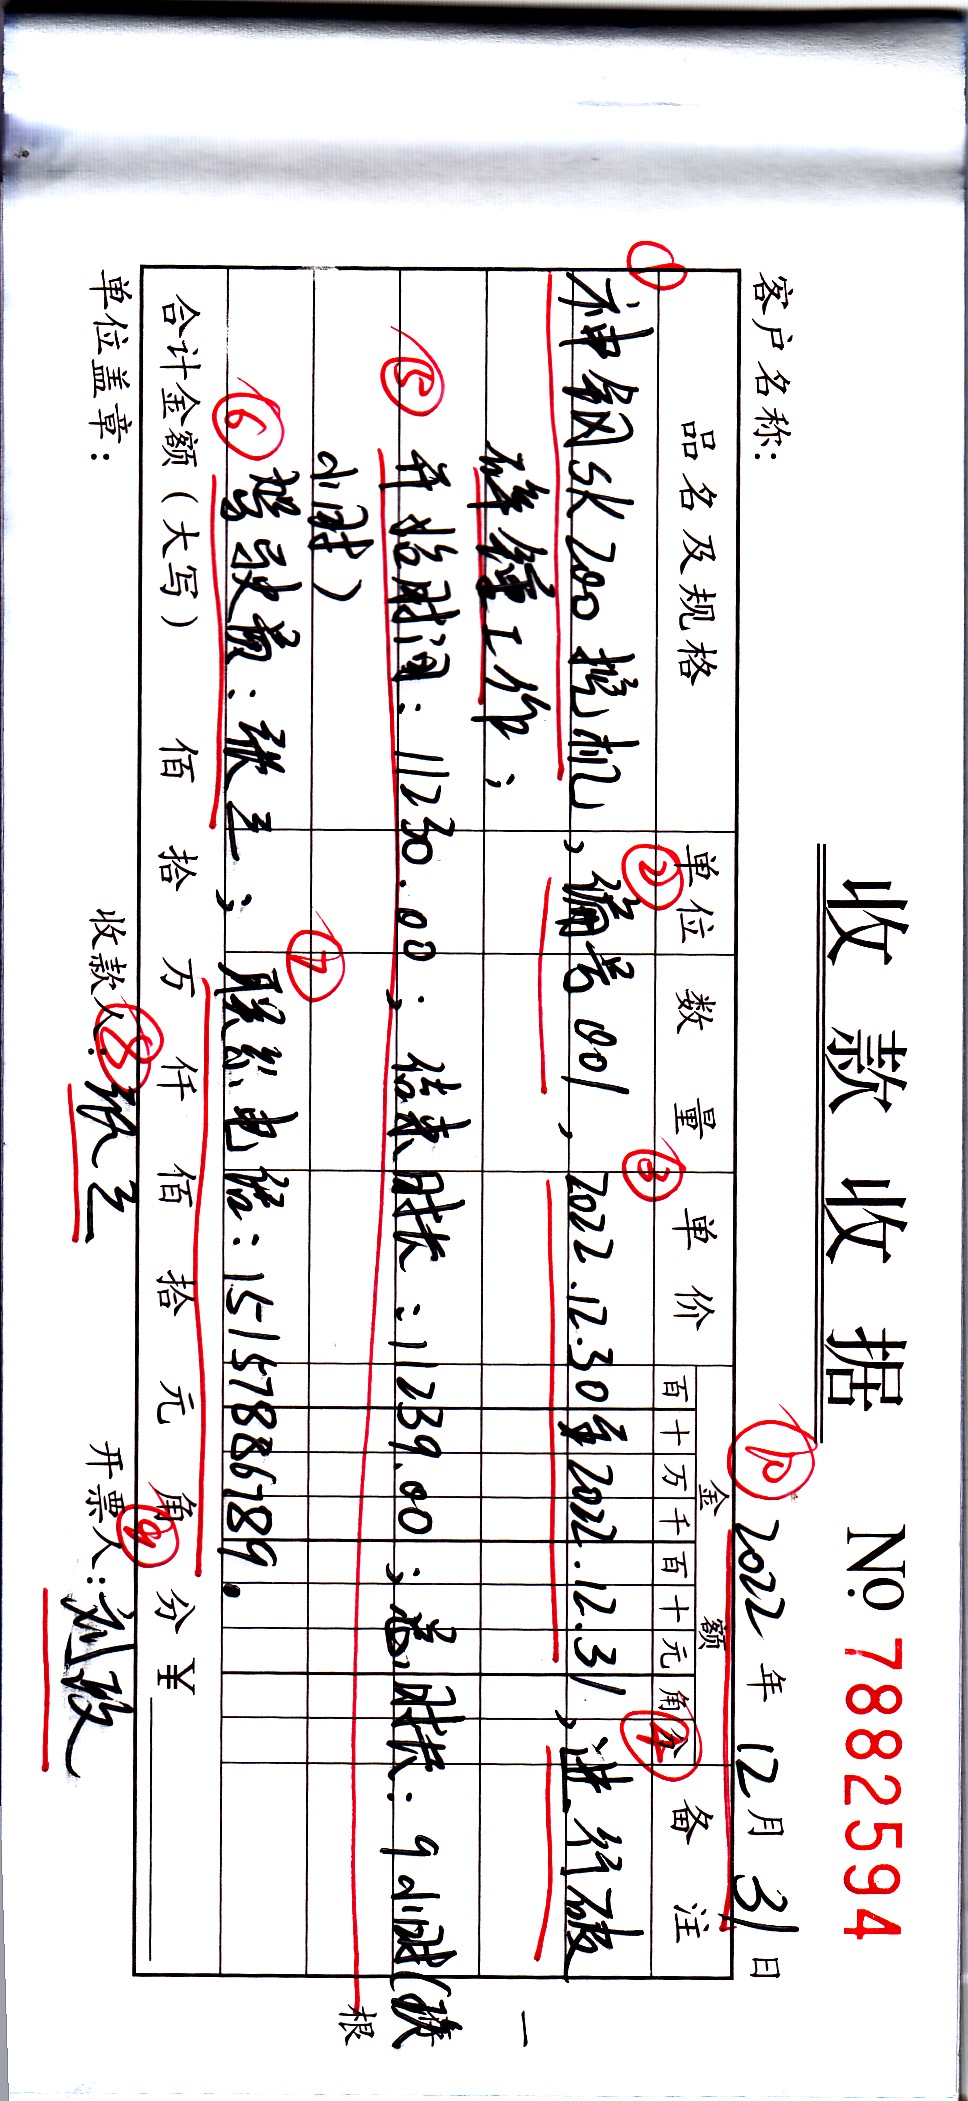 收款收据 No. 7882594
客户名称: ⑩ 2022 年 12 月 31 日
品名及规格 单位 数量 单价 金额 备注
百 十 万 千 百 十 元 角 分
① ② ③ ④
神钢SK200挖机,编号001,2022.12.30至2022.12.31,进行破
碎锤工作;
⑤ 开始时间:11230.00;结束时长:11239.00;总时长:9小时(玖
小时)
⑥ 驾驶员:张三; ⑦ 联系电话:15157886789。
合计金额(大写) 佰 拾 万 仟 佰 拾 元 角 分 ¥
单位盖章: 收款人: ⑧ 张三 开票人: ⑨ 刘政
一
根